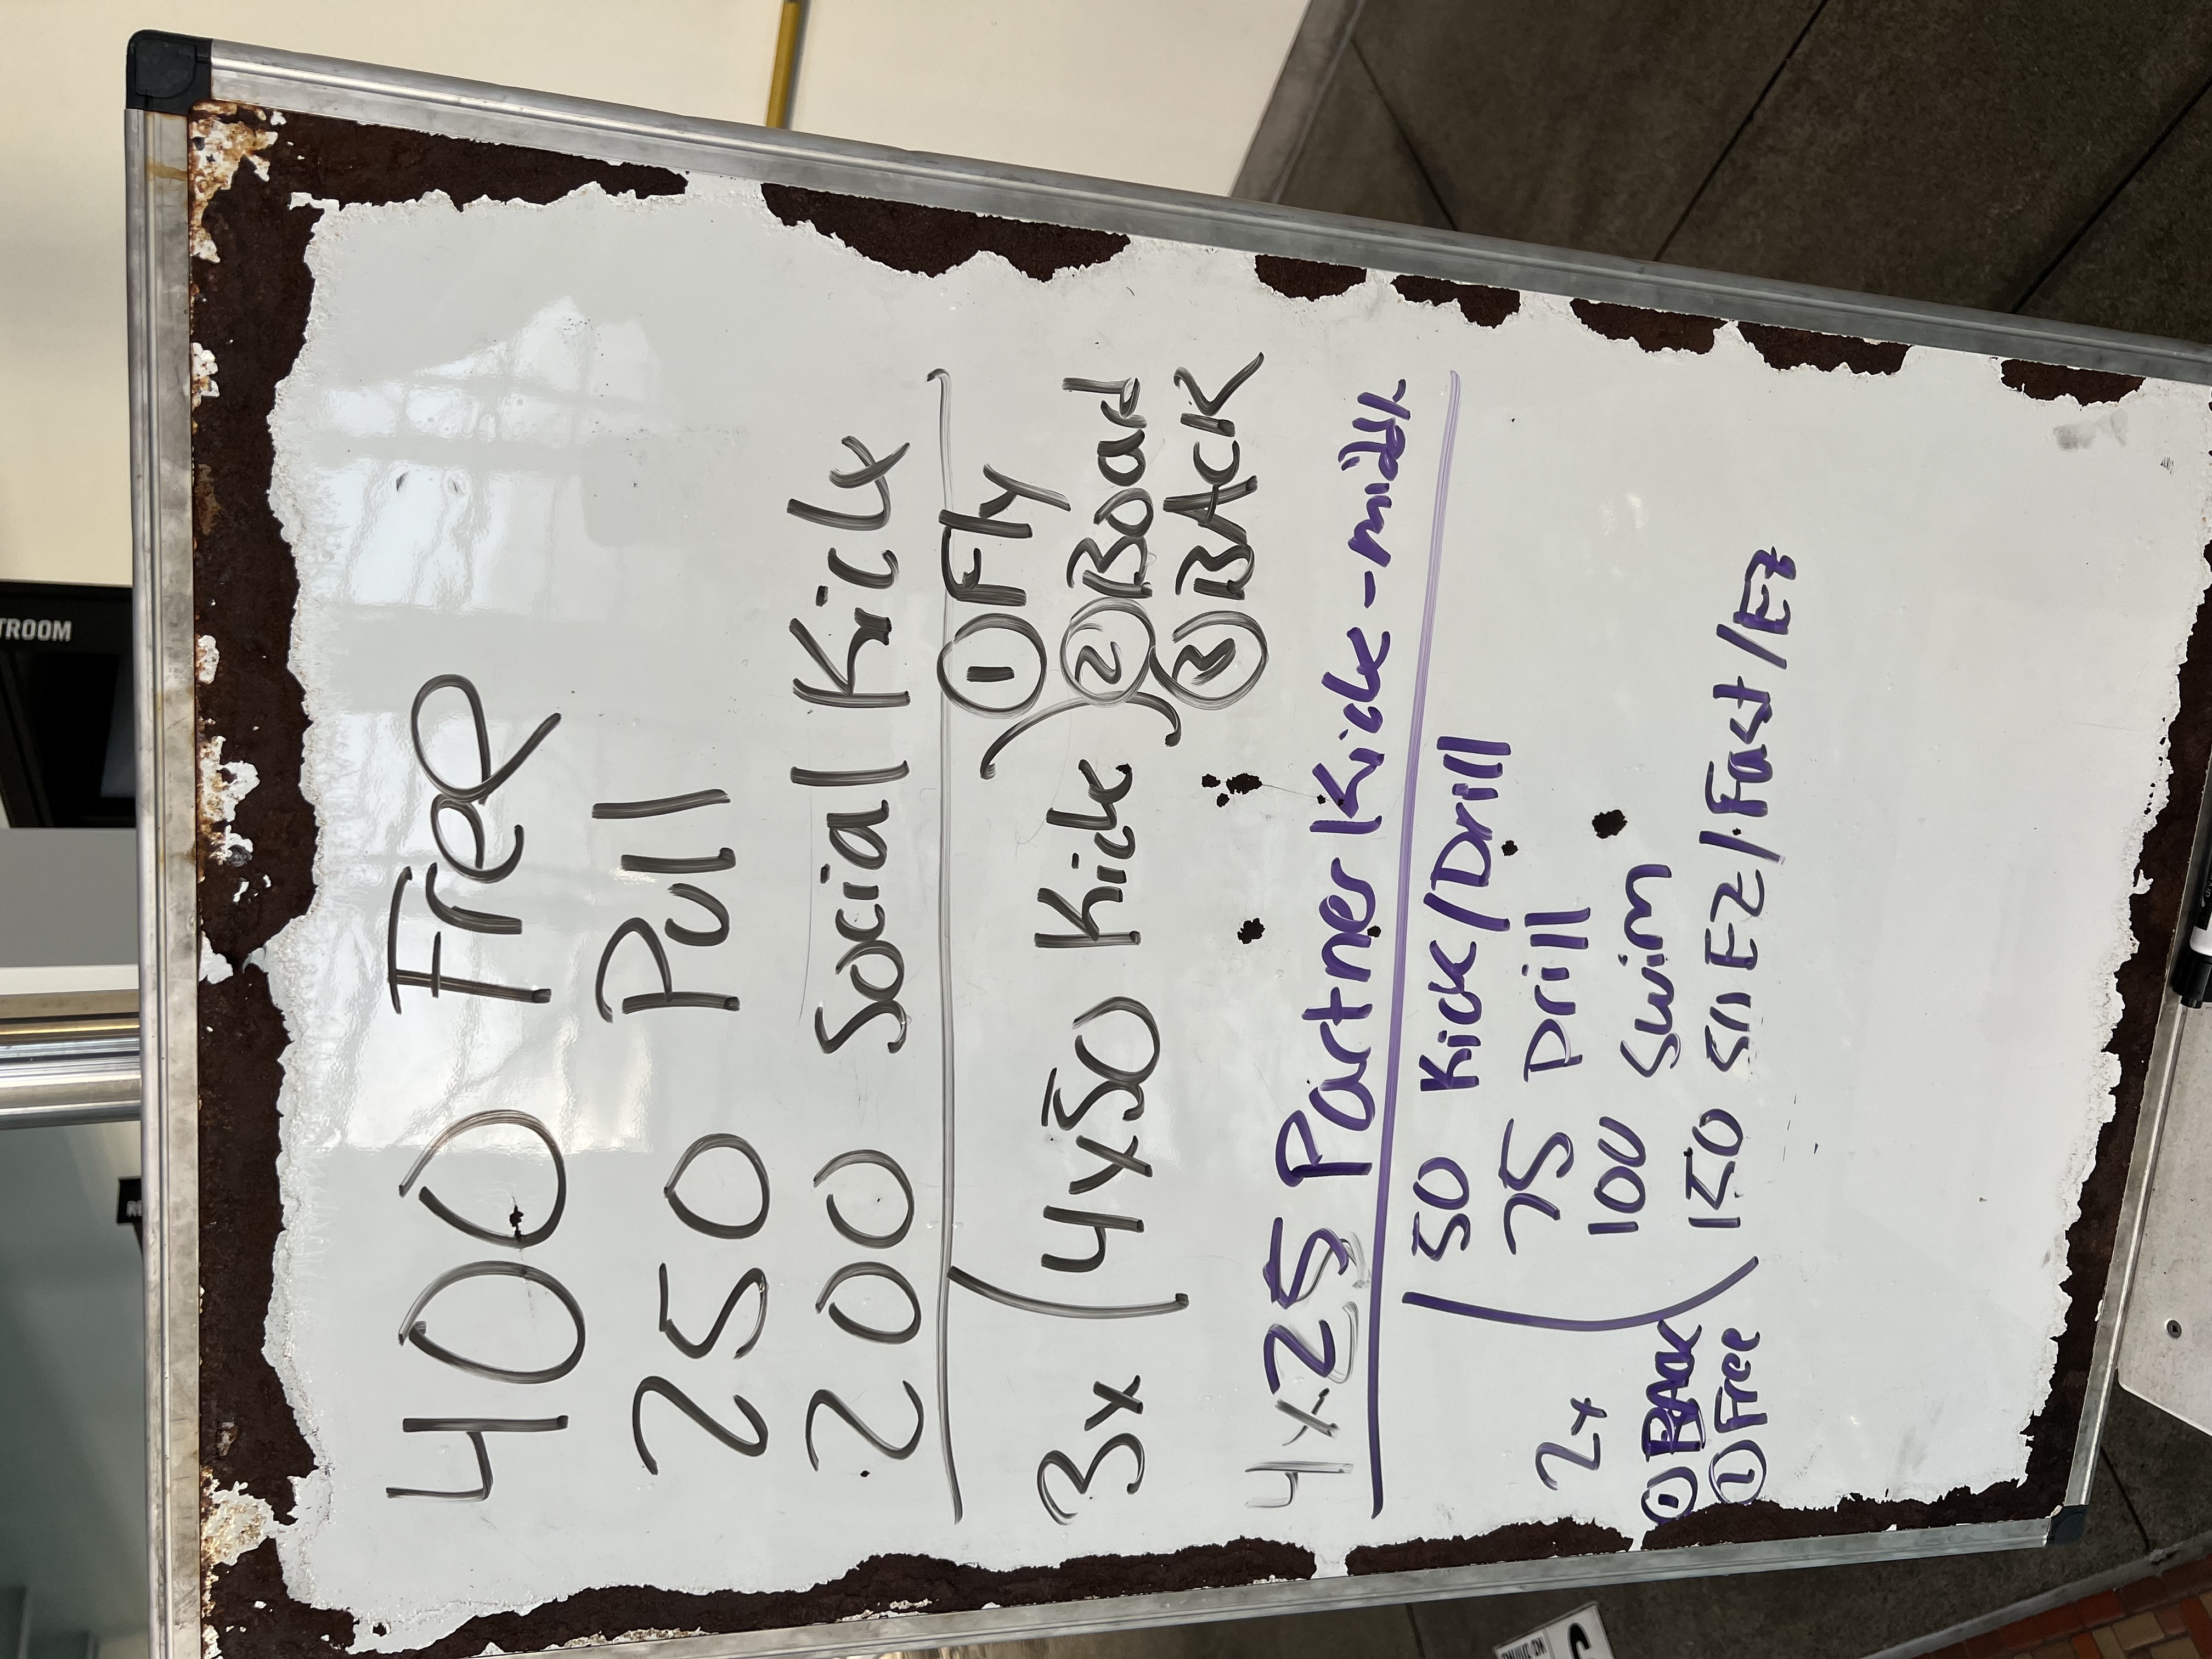 400 Free
250 Pull
200 Social Kick
3x (4x50 Kick) ① Fly
② Board
③ BACK
4x25 Partner Kick - middle
2x ( 50 Kick/Drill
75 Drill
100 Swim
150 50 EZ/Fast/EZ
① BACK
② Free
TROOM